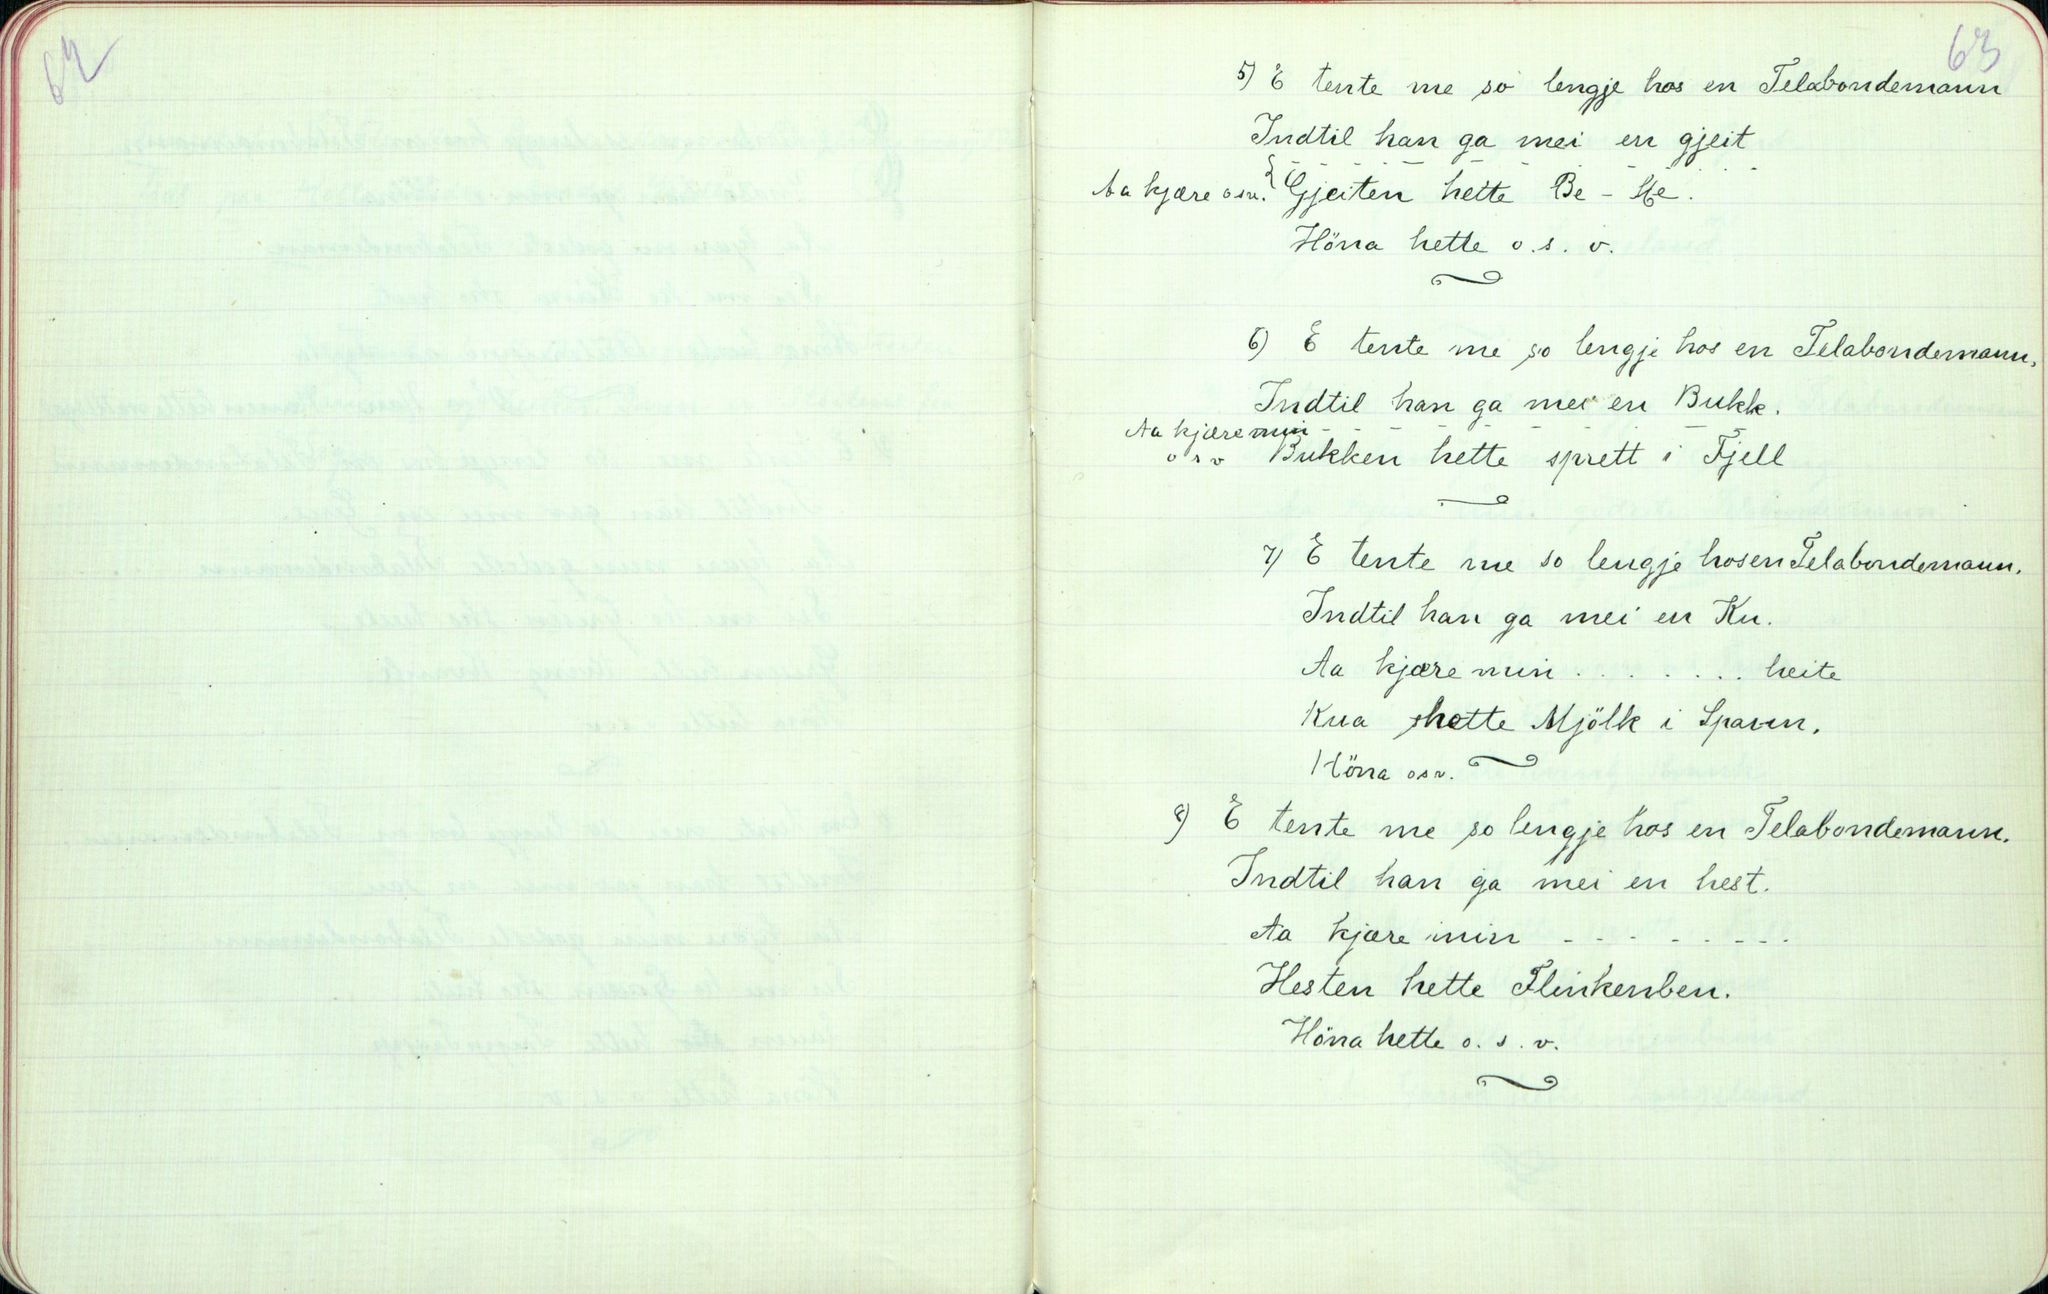 62
63
5) E tente me so lengje hos en Telabondemann
Indtil han ga mei en gjeit
- - - - - - - - - - - -
Aa kjære osv. { Gjeiten hette Be - He.
Höna hette o. s. v.
6) E tente me so lengje hos en Telabondemann.
Indtil han ga mei en Bukk.
Aa kjære min - - - - - - -
o s v Bukken hette sprett i Fjell
7) E tente me so lengje hos en Telabondemann.
Indtil han ga mei en Ku.
Aa kjære min . . . . . . . heite
Kua hette Mjölk i Spann.
Höna osv.
8) E tente me so lengje hos en Telabondemann.
Indtil han ga mei en hest.
Aa kjære min - - - - - - - -
Hesten hette Flinkenben.
Höna hette o. s. v.